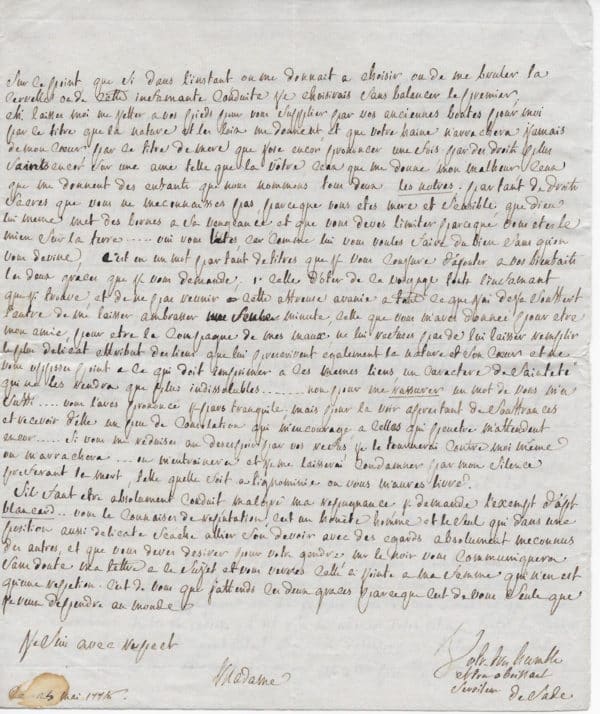 sur ce point que si dans l'instant on me donnait a choisir ou de me bruler la
cervelle ou de cette infamante conduite je choisirais sans balancer le premier,
laisses moi me jetter a vos pieds pour vous supplier par vos anciennes bontes pour moi
par ce titre que la nature et les loix me donnent et que votre haine n'arrachera jamais
de mon cœur par ce titre de mere que j'ose encor prononcer une fois par des droits plus
saints encor sur une ame telle que la votre ceux que me donne mon malheur ceux
que me donnent des enfants que nous nommons tous deux les notres. par tant de droits
sacres que vous ne meconnaisses pas parceque vous etes mere et sensible que dieu
lui meme met des bornes a sa vengeance et que vous deves limiter parceque vous etes le
mien sur la terre..... oui vous letes car comme lui vous voules faire du bien sans qu'on
vous devine. c'est en un mot par tant de titres que je vous conjure d'ajouter a vos bienfaits
les deux graces que je vous demande. celle d'oter de ce voyage tout l'infamant
que j'i trouve et de ne pas reunir cette affreuse avanie a tout ce que j'ai deja souffert
l'autre de me laisser ambrasser une seule minute, celle que vous m'aves donnée pour etre
mon amie, pour etre la compagne de mes maux ne lui refuses pas de lui laisser remplir
le plus delicat attribut des liens que lui prescrivent egalement la nature et son cœur et ne
vous opposes point a ce qui doit imprimer a ces memes liens un caractere de sainteté
qui ne les rendra que plus indissolubles........ non pour me rassurer un mot de vous m'a
suffi..... vous l'aves prononcé je pars tranquile, mais pour la voir a partant de souffrances
et recevoir d'elle un peu de consolation qui m'encourage a celles qui peutetre m'attendent
encor.... si vous me reduises au desespoir par vos refus je le tournerai contre moi meme
on m'arrachera.... on m'entrainera et je me laisserai condamner par mon silence
preferant la mort, telle quelle soit a l'ignominie ou vous m'aures livré.
S'il faut etre absolument conduit malgré ma repugnance je demande l'exempt d'
blancard.. vous le connaises de reputation, c'est un honete homme et le seul qui dans une
position aussi delicate scache allier son devoir avec des egards absolument meconnus
des autres, et que vous deves desirer pour votre gendre mr le noir vous communiquera
sans doute ma lettre a ce sujet et vous verres celle ci jointe a ma femme qui n'en est
qu'une repetition. c'est de vous que j'attends ces deux graces parceque c'est de vous seule que
je veux dependre au monde
Je suis avec respect
Madame
Votre tres humble
et tres obeissant
serviteur
de Sade
mai